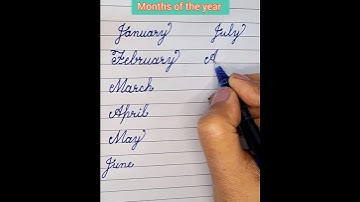 Months of the year
January
February
March
April
May
June
July
A